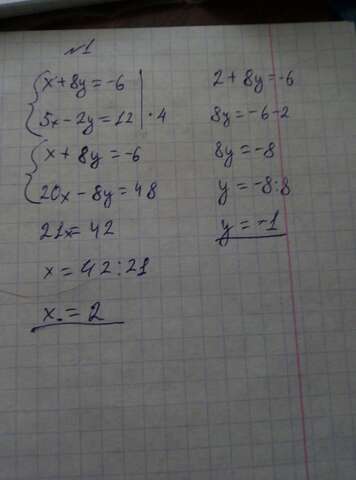 №1
x+8y=-6
5x-2y=12 | ·4
x+8y=-6
20x-8y=48
21x=42
x=42:21
x=2
2+8y=-6
8y=-6-2
8y=-8
y=-8:8
y=-1